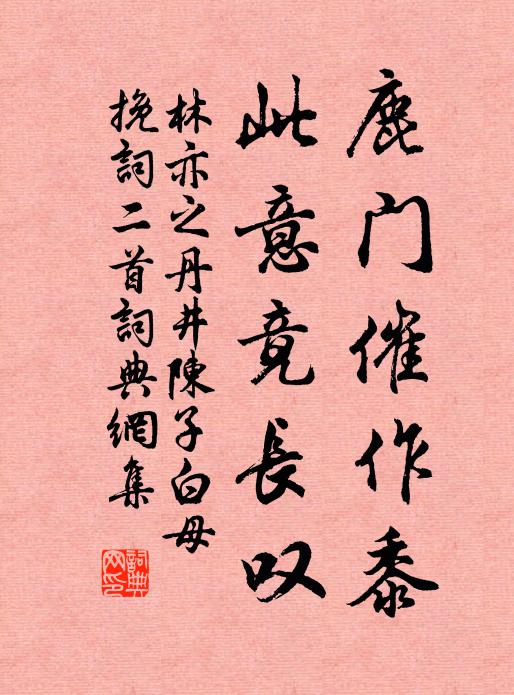 鹿门催作黍
此意竟長叹
林亦之丹井陳子白母
挽詞二首詞典網集
詞典网印